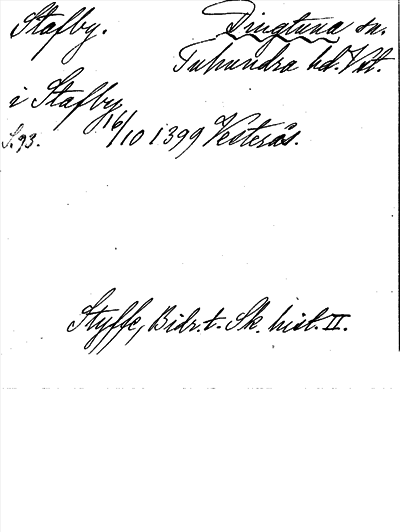 Stafby. Dingtuna sn.
Tuhundra hd. Vstl.
i Stafby
S. 93. 16/10 1399 Vesterås.
Styffe, Bidr. t. Sk. hist. II.